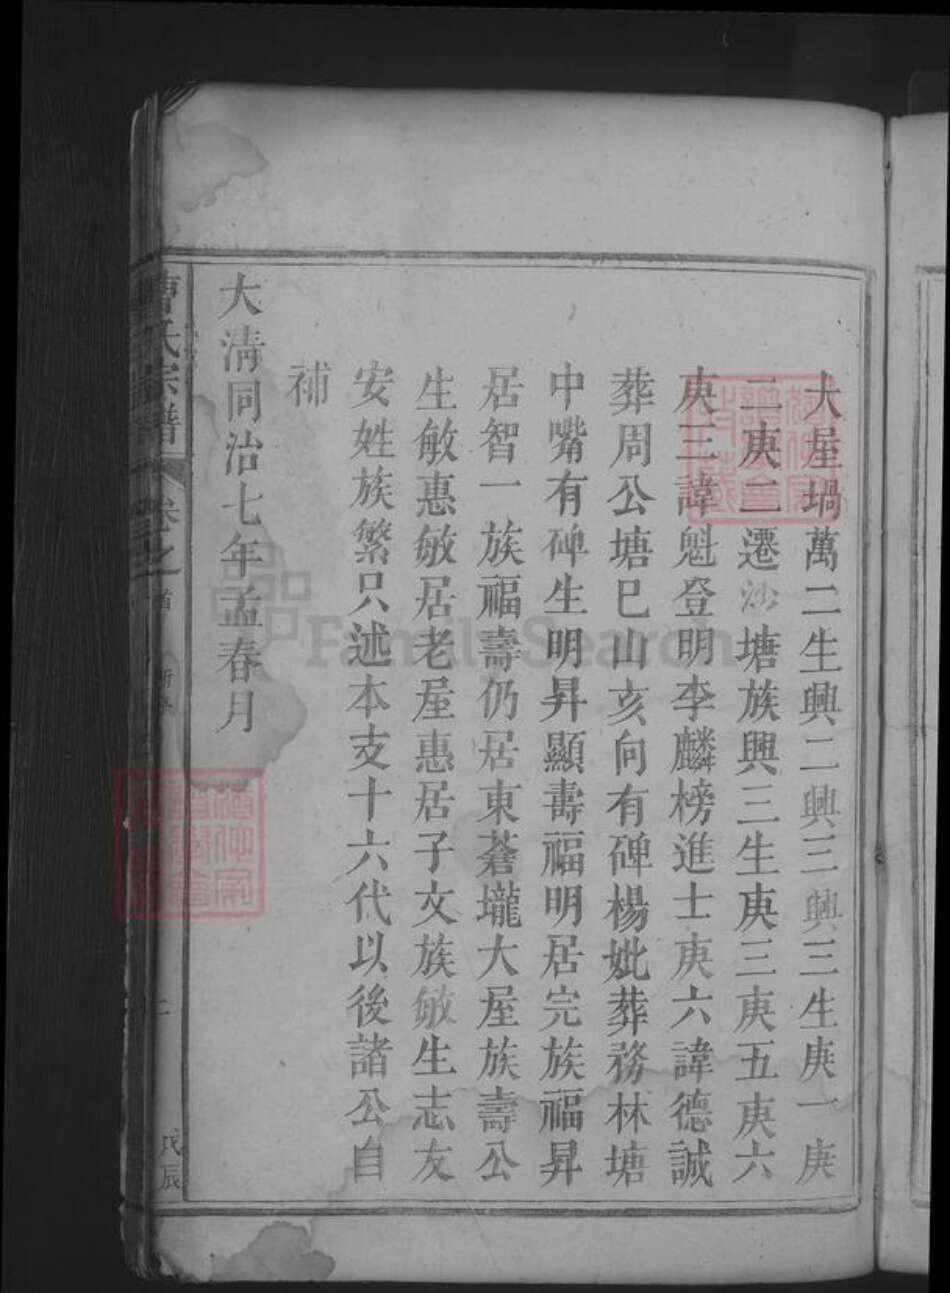 大屋堝萬二生興二興三興三生庚一庚
二庚二遷沙塘族興三生庚三庚五庚六
庚三諱魁登明李麟榜進士庚六諱德誠
葬周公塘巳山亥向有碑楊妣葬務林塘
中嘴有碑生明昇顯壽福明居完族福昇
居智一族福壽仍居東蒼壠大屋族壽公
生敏惠敏居老屋惠居子文族敏生志友
安姓族繁只述本支十六代以後諸公自
補
大清同治七年孟春月
曹氏宗譜
卷之首
戊辰
FamilySearch